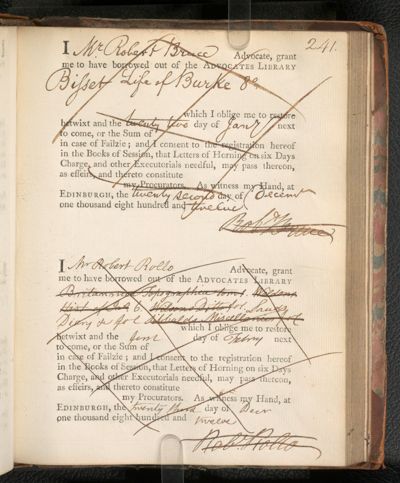 241.
I Mr Robert Bruce Advocate, grant
me to have borrowed out of the ADVOCATES LIBRARY
Bisset Life of Burke 8o
which I oblige me to restore
betwixt and the twenty two day of Jany next
to come, or the Sum of
in case of Failzie; and I consent to the registration hereof
in the Books of Session, that Letters of Horning on six Days
Charge, and other Executorials needful, may pass thereon,
as effeirs, and thereto constitute
my Procurators. As witness my Hand, at
EDINBURGH, the twenty second day of Decemr
one thousand eight hundred and twelve
Robt Bruce
I Mr Robert Rollo Advocate, grant
me to have borrowed out of the ADVOCATES LIBRARY
Britannica Topographica
Diary
which I oblige me to restore
betwixt and the day of Febry next
to come, or the Sum of
in case of Failzie; and I consent to the registration hereof
in the Books of Session, that Letters of Horning on six Days
Charge, and other Executorials needful, may pass thereon,
as effeirs, and thereto constitute
my Procurators. As witness my Hand, at
EDINBURGH, the twenty third day of Decr
one thousand eight hundred and twelve
Robt Rollo